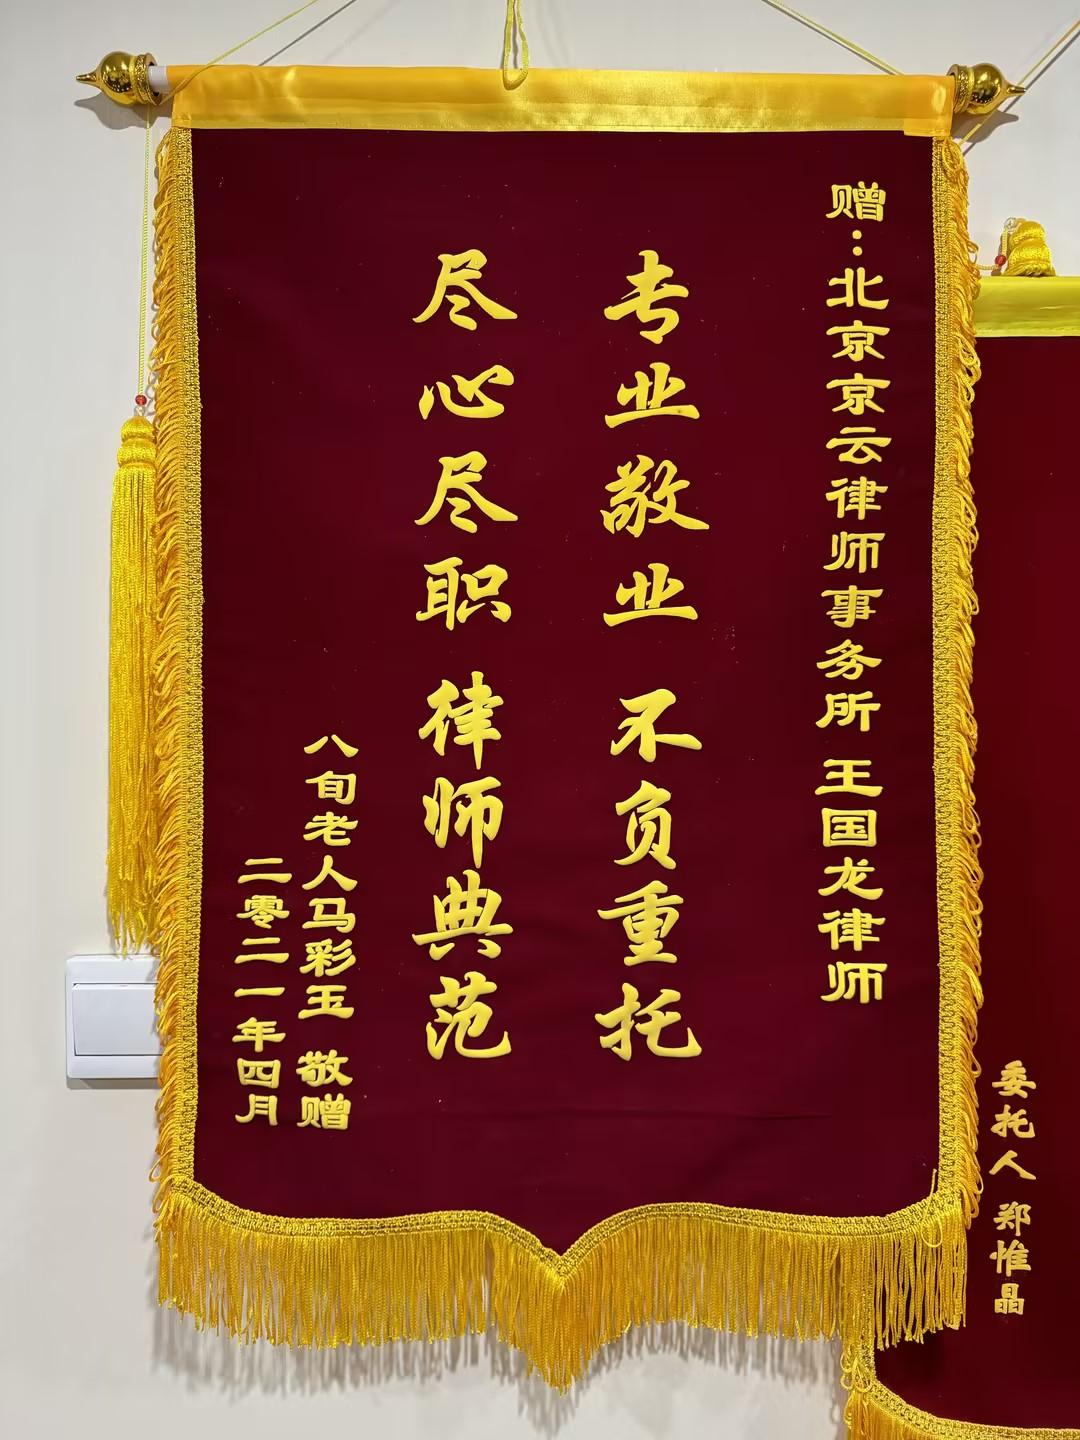 赠：北京京云律师事务所 王国龙律师
专业敬业 不负重托
尽心尽职 律师典范
八旬老人马彩玉 敬赠
二零二一年四月
委托人 郑惟晶